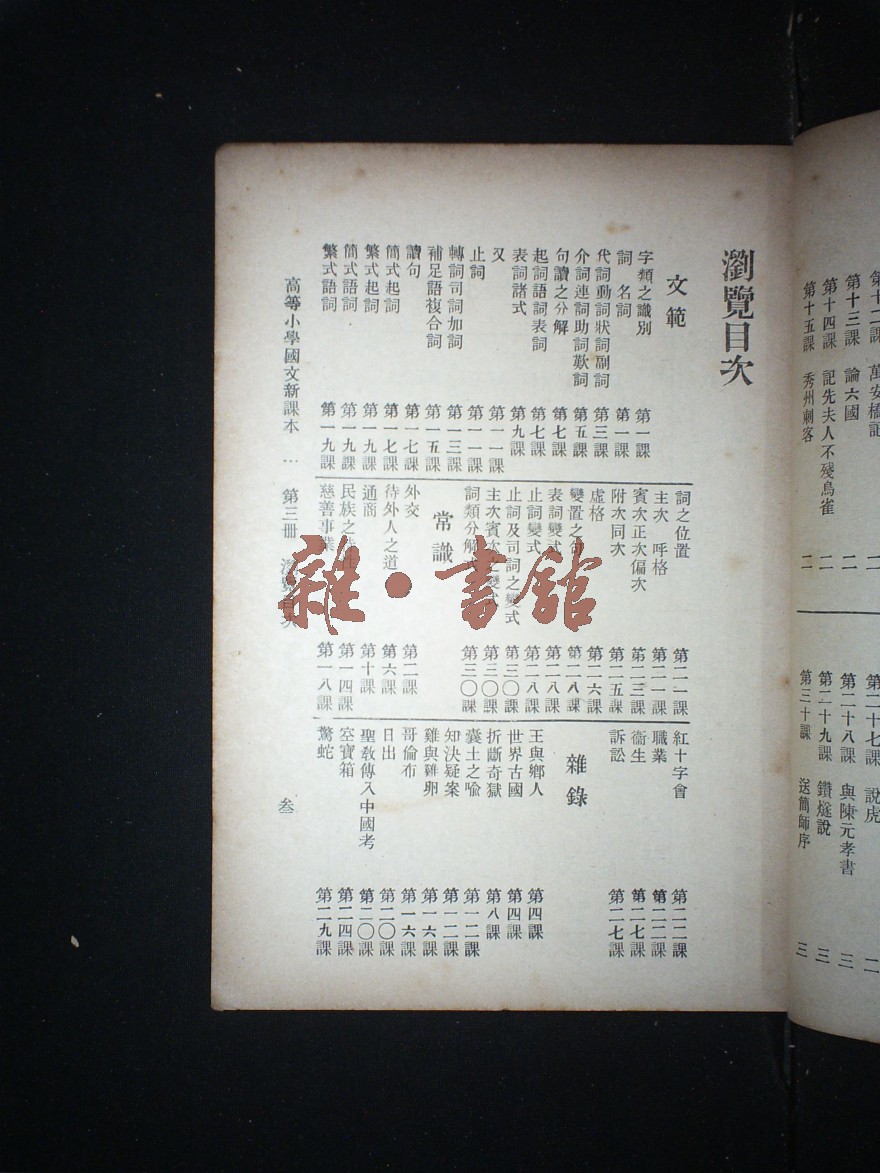 第十二課 萬安橋記
第十三課 論六國 二
第十四課 記先夫人不殘鳥雀 二
第十五課 秀州刺客 二
第二十七課 說虎 二
第二十八課 與陳元孝書 三
第二十九課 鑽燧說 三
第三十課 送簡師序 三
瀏覽目次
文範
字類之識別 第一課
詞 名詞 第一課
代詞動詞狀詞副詞 第三課
介詞連詞助詞歎詞 第五課
句讀之分解 第七課
起詞語詞表詞 第七課
表詞諸式 第九課
又 第一一課
止詞 第一一課
轉詞司詞加詞 第一三課
補足語複合詞 第一五課
讀句 第一七課
簡式起詞 第一七課
繁式起詞 第一九課
簡式語詞 第一九課
繁式語詞 第一九課
詞之位置 第二一課
主次 呼格 第二一課
賓次正次偏次 第二三課
附次同次 第二五課
虛格 第二六課
變置之句 第二八課
表詞變式 第二八課
止詞變式 第二八課
止詞及司詞之變式 第三〇課
主次賓次之變式 第三〇課
詞類分解式 第三〇課
常識
外交 第二課
待外人之道 第六課
通商 第十課
民族之特性 第一四課
慈善事業 第一八課
紅十字會 第二二課
職業 第二二課
衞生 第二七課
訴訟 第二七課
雜錄
王與鄉人 第四課
世界古國 第四課
折斷奇獄 第八課
囊土之喩 第一二課
知決疑案 第一二課
雞與雞卵 第一六課
哥倫布 第一六課
日出 第二〇課
聖敎傳入中國考 第二〇課
空寶箱 第二四課
驚蛇 第二九課
高等小學國文新課本 … 第三册 瀏覽目次 叁
雜·書館